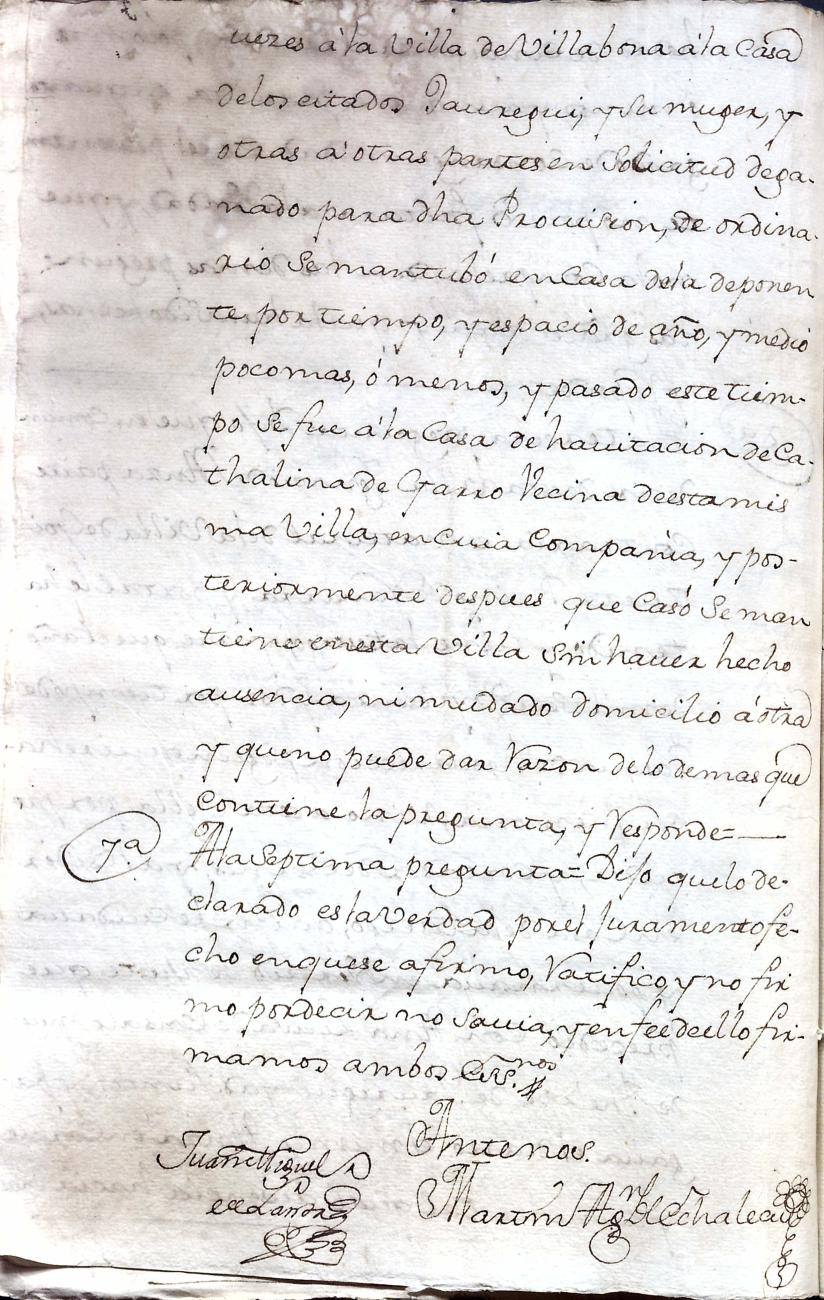 uezes â la Villa de Villabona â la Casa
delos citados Jauregui, y Su muger, y
otras a' otras partes en Solicitud de ga-
nado para dha Provision, de ordina-
rio Se mantubó en Casa dela deponen
te por tiempo, y espacio de año, y medio
poco mas, ó menos, y pasado este tiem-
po Se fue â la Casa de havitacion de Ca-
thalina de Garro Vecina de esta mis
ma Villa, en Cuia Compania, y pos-
teriormente despues que Casó Se man
tiene en esta Villa Sin haver hecho
ausencia, ni mudado domicilio a' otra
y que no puede dar Razon delo demas que
Contiene la pregunta, y Responde=
7.ª A la Septima pregunta= Dijo que lo de-
clarado es la Verdad por el Juramento fe-
cho en que se afirmo, Ratifico, y no fir
mo por decir no Savia, y en fee de ello fir-
mamos ambos Ess.nos
Ante nos.
Juan Miguel
de Landa
Martin Ag.n de Echaleau